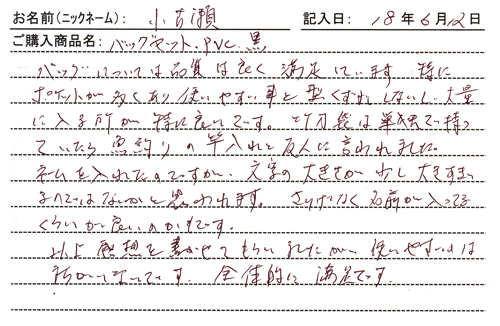 お名前（ニックネーム）： 小古瀬 記入日： 18年6月12日
ご購入商品名： バッグセット、PVC、黒
バッグについては品質は良く満足しています。特に
ポケットが多くあり使いやすい事と型くずれしないし、大量
に入る所が特に良いです。竹刀袋は単独で持っ
ていたら魚釣りの竿入れと友人に言われました。
ネームを入れたのですが、文字の大きさが少し大きすぎ
るのではないかと思われます。さりげなく名前が入ってる
くらいが良いのかもです。
以上感想を書かせてもらいましたが、使いやすいは
まちがいないです。全体的に満足です。